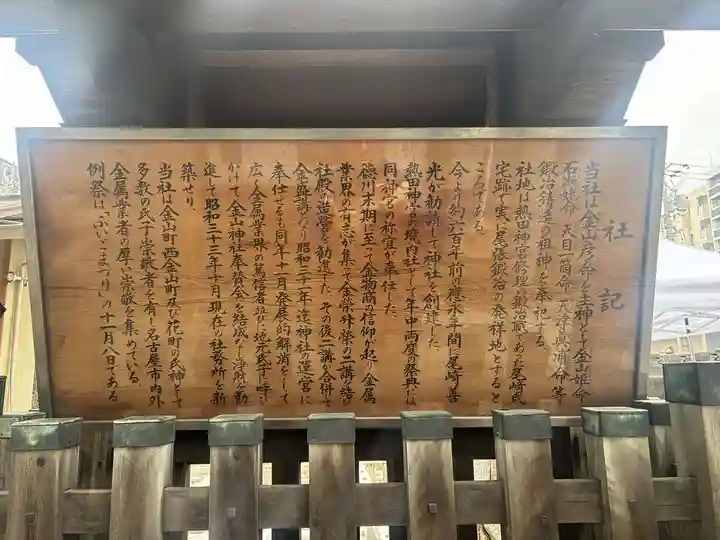 社記
当社は金山彦命を主神として金山姫命
石凝姥命 天目一箇命 天津眞浦命 等
鍛冶鋳造の祖神を奉祀する
社地は熱田神宮修理鍛冶職であった尾崎氏
宅跡で実に尾張鍛冶の発祥地とすると
ころである
今より約六百年前の應永年間に尾崎善
光が勧請して神社を創建した
熱田神宮の境外社として年中両度の祭典には
同神宮の祢宜が奉仕した
徳川末期に至って金物商の信仰が起り金属
業界の有志が集って金栄 栄の二講を結び
社殿の造営を勧進した その後二講が合併して
金盛講となり昭和三十一年迄神社の運営に
奉仕せるも同年十一月発展的解消をして
広く金属業界の篤信者並に地元氏子に呼び
かけて金山神社奉賛会を結成なし浄財を勧
進して昭和三十三年十月現在の社務所を新
築せり
当社は金山町西金山町及び花町の氏神として
多数の氏子崇敬者を有し名古屋市内外
金属業者の厚い崇敬を集めている
例祭は「ふいごまつり」の十一月八日である